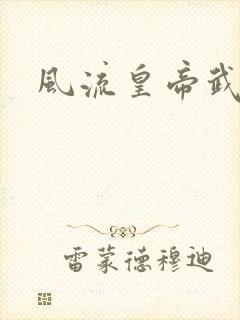 風流皇帝武
雷蒙德穆迪